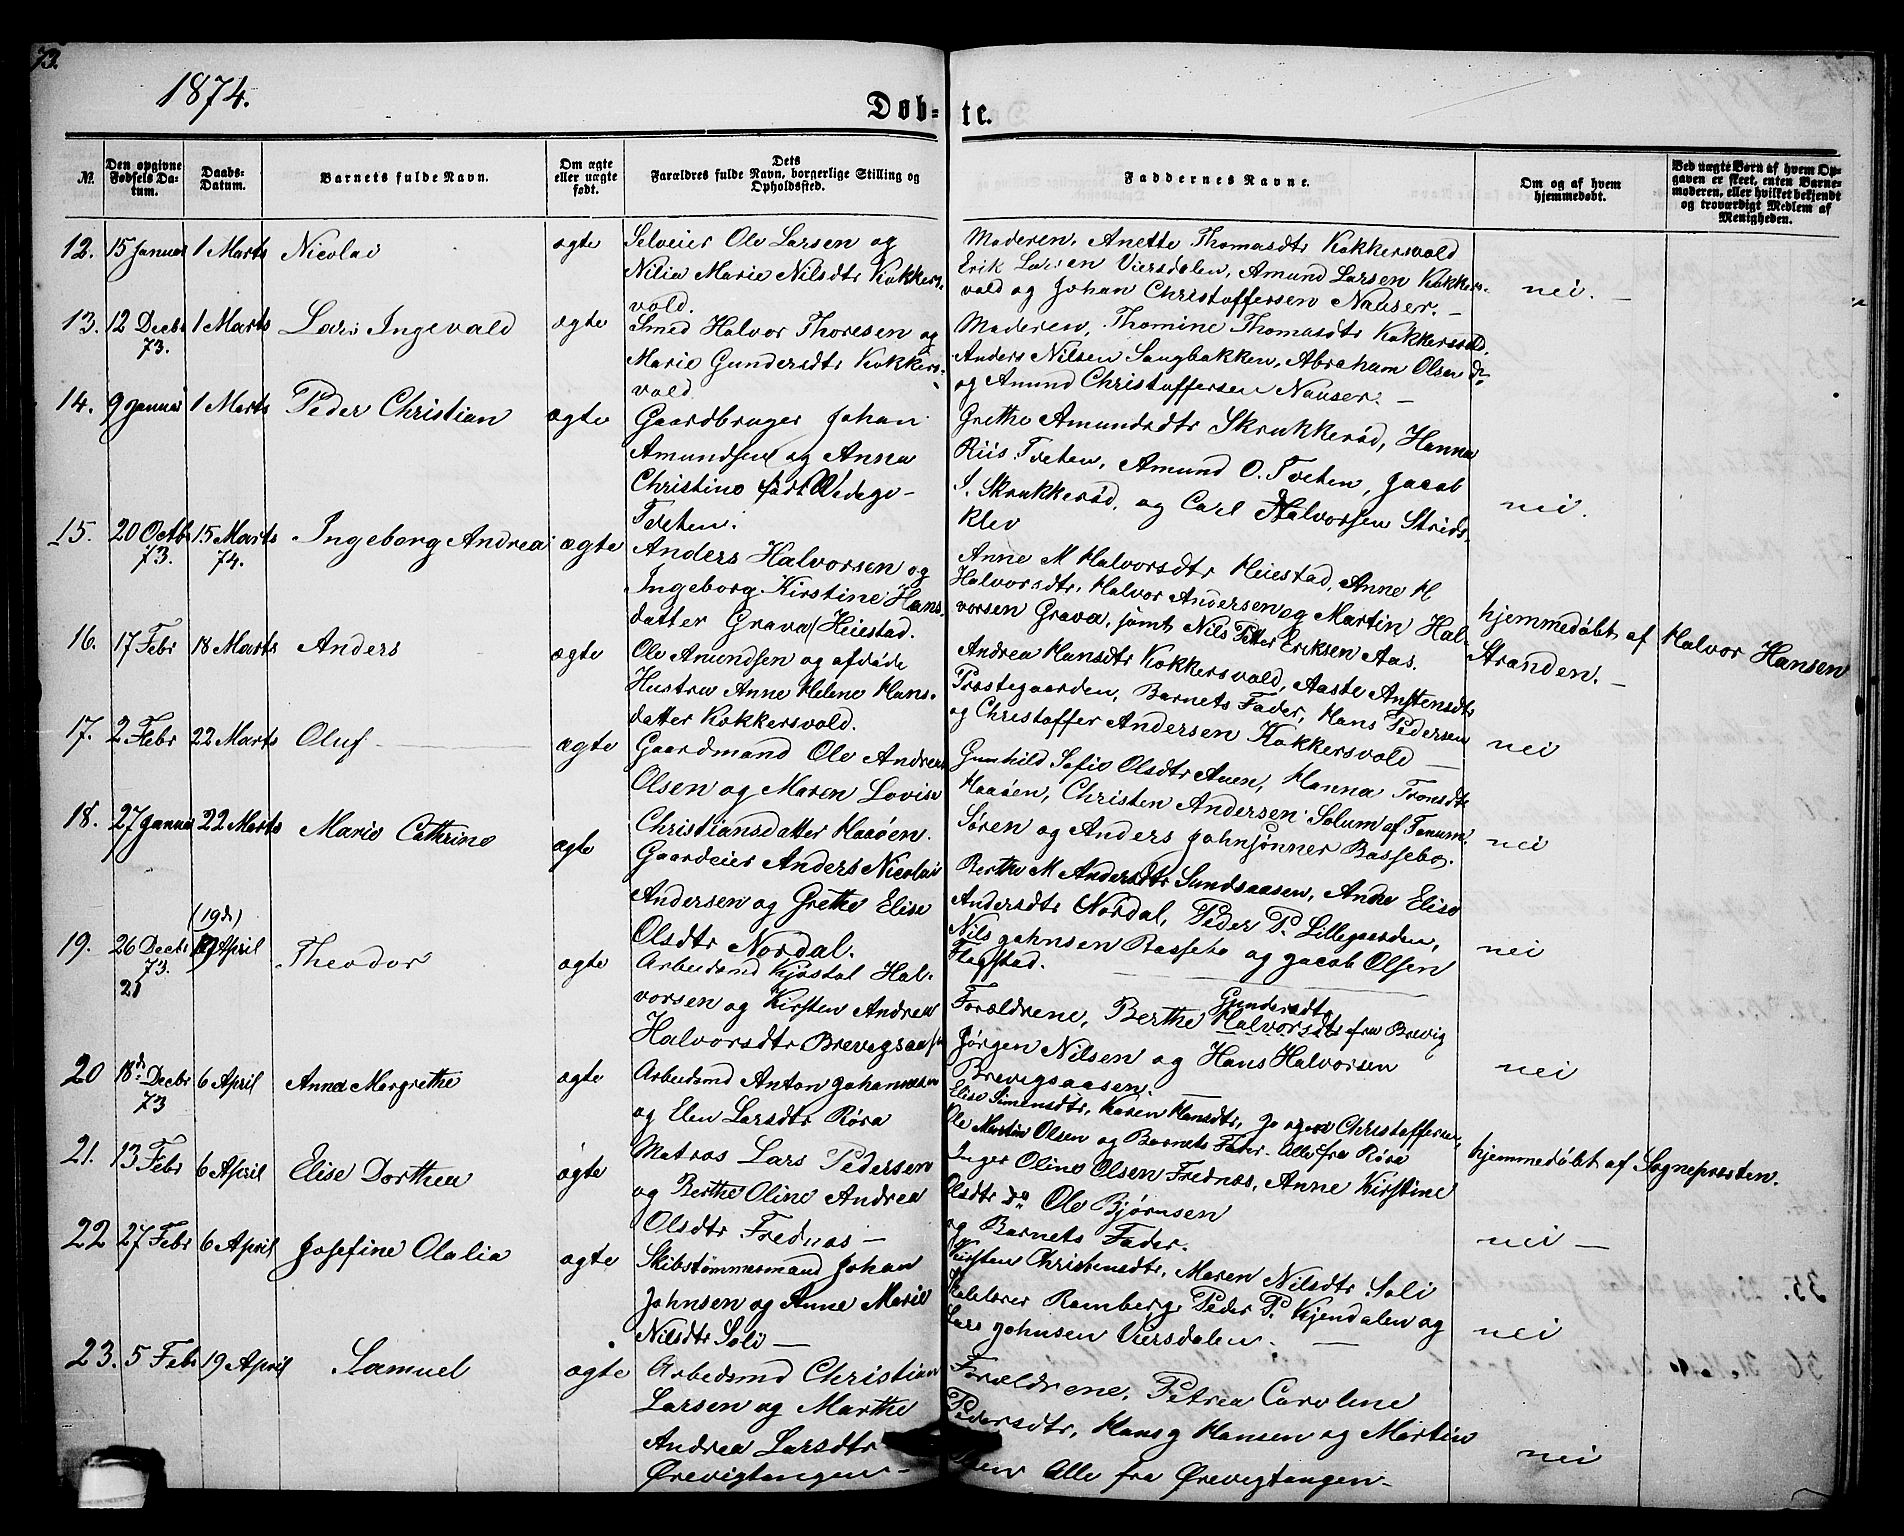 73.
1874.
Døb-te.
№.
Den opgivne Fødsels Datum.
Daabs-Datum.
Barnets fulde Navn.
Om ægte eller uægte født.
Dets Forældres fulde Navn, borgerlige Stilling og Opholdssted.
Faddernes Navne.
Om og af hvem hjemmedøbt.
Ved uægte Børn af hvem Opgaven er skeet, enten Barnemoderen, eller hvilket bekjendt og troværdigt Medlem af Menigheden.
12. 15 Januar 1 Marts Nicolai ægte
Selveier Ole Larsen og
Nilia Marie Nilsdtr Kokkers-
vold.
Moderen, Anette Thomasdtr Kokkersvold
Erik Larsen Viersdalen, Amund Larsen Kokkers-
vold og Johan Christoffersen Nauser. –
nei. –
13. 12 Decbr 73. 1 Marts Lars Ingevald ægte
Smed Halvor Thoresen og
Marie Gundersdtr Kokkers-
vold.
Moderen, Thomine Thomasdtr Kokkersvold,
Anders Nilsen Saugbakken, Abraham Olsen do
og Amund Christoffersen Nauser. –
14. 9 Januar 1 Marts Peder Christian ægte
Gaardbruger Johan
Amundsen og Anna
Christine født Wedege –
Tveten.
Grethe Amundsdtr Skrukkerød, Hanna
Riis Tveten, Amund O. Tveten, Jacob
I. Skrukkerød, og Carl Halvorsen Strids-
klev
nei.
15. 20 Octb 73. 15 Marts 74. Ingeborg Andrea ægte
Anders Halvorsen og
Ingeborg Kirstine Hans-
datter Grava/Heiestad.
Anne M Halvorsdtr Heiestad, Anne H
Halvorsdtr, Halvor Andersen og Martin Hal-
vorsen Grava, samt Nils Petter Eriksen Aas.
hjemmedøbt af Halvor Hansen
Stranden. –
16. 17 Febr 18 Marts Anders ægte
Ole Amundsen og afdøde
Hustru Anne Helene Hans-
datter Kokkersvold.
Andrea Hansdtr Kokkersvold, Aaste Anstensdtr
Prestegaarden, Barnets Fader, Hans Pedersen
og Christoffer Andersen Kokkersvold –
nei
17. 2 Febr 22 Marts Oluf – ægte
Gaardmand Ole Andreas
Olsen og Maren Lovise
Christiansdatter Haaøen.
Gunhild Sofie Olsdtr Auen, Hanna Tronsdtr
Haaøen, Christen Andersen Solum af Tanum.
Søren og Anders Johnsønner Bassebo.
nei
18. 27 Januar 22 Marts Marie Cathrine ægte
Gaardeier Anders Nicolai
Andersen og Grethe Elise
Olsdtr Nordal.
Berthe M Andersdtr Sundsaasen, Andre Elise
Andersdtr Nordal, Peder P. Lillegaarden,
Nils Johnsen Bassebo og Jacob Olsen
Flagstad.
nei
19. 26 Decbr 73. (19d) April Theodor ægte
Arbeidsmd Kjøstol Hal-
vorsen og Kirsten Andrea
Halvorsdtr Brevigsaasen
Forældrene, Berthe Gundersdtr Halvorsdtr fra Brevig
Jørgen Nilsen og Hans Halvorsen
Brevigsaasen
nei
20 18d Decbr 73 6 April Anna Margrethe ægte
Arbeidsmd Anton Johannesen
og Elen Larsdtr Røra
Elise Simensdtr, Karen Hansdtr, Christoffersen,
Ole Martin Olsen og Barnets Fader. Alle fra Røra
hjemmedøbt af Sognepresten.
21. 13 Febr 6 April Elise Dorthea ægte
Matros Lars Pedersen
og Berthe Oline Andrea
Olsdtr Frednæs –
Inger Oline Olsen Frednæs, Anne Kirstine
Olsdtr do Ole Bjørnsen
og Barnets Fader.
nei –
22 27 Febr 6 April Josefine Olalia ægte
Skibstømmermand Johan
Johnsen og Anne Marie
Nilsdtr Soli –
Kirsten Christensdtr, Maren Nilsdtr Soli
Skolelærer Ramberg, Peder P. Kjendalen og
Lars Johnsen Viersdalen. –
nei
23. 5 Febr 19 April Samuel ægte
Arbeidsmd Christian
Larsen og Marthe
Andrea Larsdtr
Ørevigtangen –
Forældrene, Petrea Caroline
Pedersdtr, Hans Hansen og Martin
Alle fra Ørevigtangen –
nei